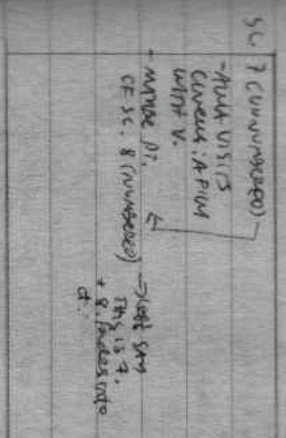 SC. 7 (UNNUMBERED)
- VISITS
CINEMA: A FILM
WITH V.
- MAYBE PT.
OF SC. 8 (NUMBERED) → let's say
THIS IS 7.
+ 8. fades into